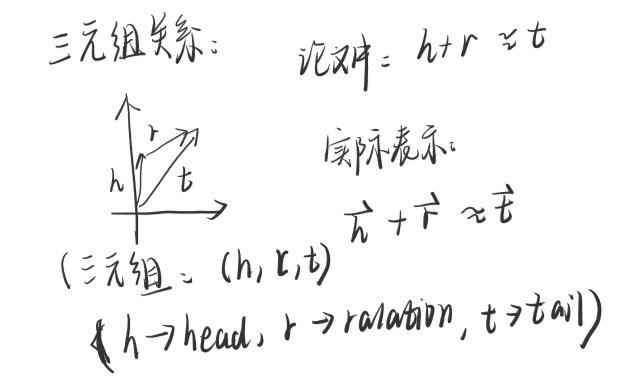 三元组关系:
论文中: h+r≈t
r
h
t
实际表示:
h⃗ + r⃗ ≈ t⃗
(三元组: (h, r, t)
(h→head, r→ralation, t→tail)